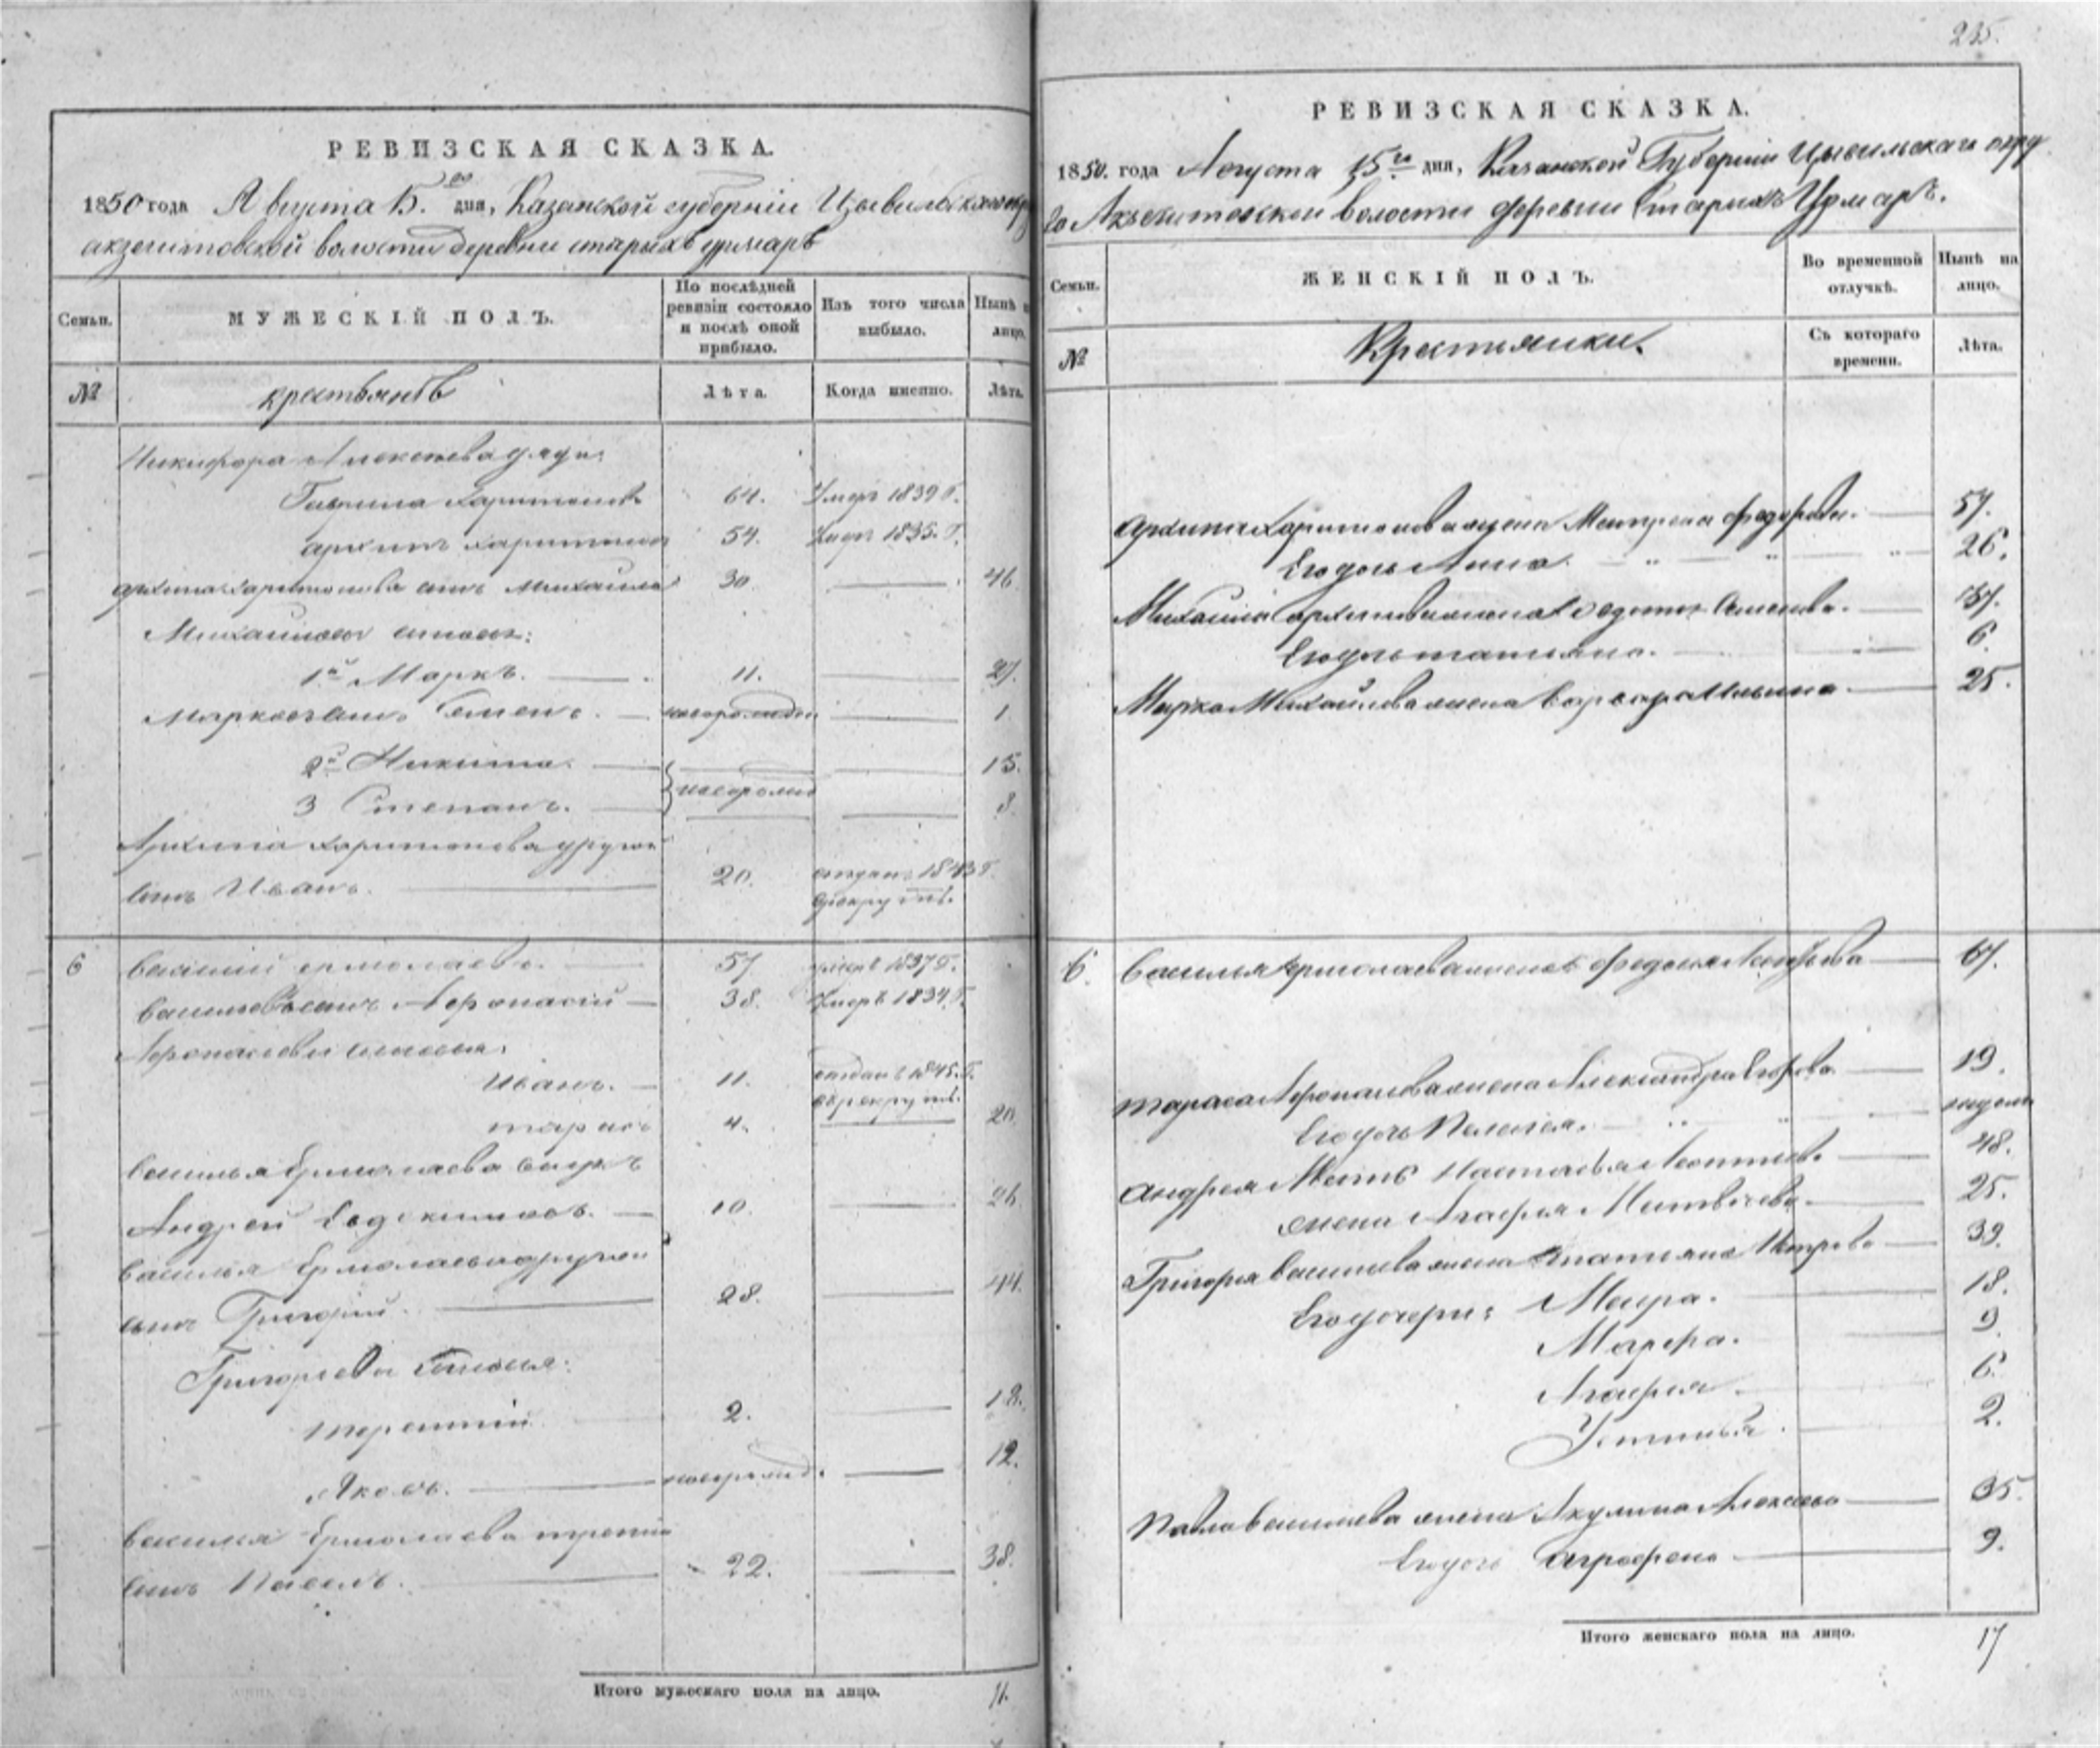 РЕВИЗСКАЯ СКАЗКА.
1850 года Августа 15.го дня, Казанской губерніи Цывильскаго
акзегитовской волости деревни старыхъ урмаръ
Семьи.
МУЖЕСКІЙ ПОЛЪ.
По послѣдней ревизіи состояло и послѣ оной прибыло.
Изъ того числа выбыло.
Нынѣ
лицо.
№
крестьянъ
Лѣта.
Когда именно.
Лѣта.
Никифора Алексеева дяди:
Гаврила Харитоновъ 64. Умеръ 1839 Г.
архипъ харитоновъ 54. Умеръ 1835. Г.
архипа харитонова сынъ Михаила 30 46
Михаиловы сыновья:
1й Маркъ. 11. 27.
Марковъ сынъ Семенъ. новорожден 1
2й Никита. 15.
3 Степанъ. новорожд 8.
Архипа харитонова другой
сынъ Иванъ. 20. отданъ 1843 Г.
врекруты.
6 василий ермолаевъ. 57 умеръ 1837 Г.
васильевъ сынъ Афонасий 38. Умеръ 1834. Г.
Афонасьевы сыновья:
Иванъ. 11. отданъ 1845. Г.
врекруты.
тарасъ 4. 20
василья Ермолаева внукъ
Андрей Евдокимовъ. 10. 26
василья Ермолаева другой
сынъ Григорий. 28. 44.
Григорьевы сыновья:
терентий 2. 18.
Яковъ. новорожд. 12.
василья Ермолаева третий
сынъ Павелъ. 22. 38.
Итого мужескаго пола на лицо. 11.
225.
РЕВИЗСКАЯ СКАЗКА.
1850. года Августа 15го дня, Казанской Губерніи Цывильскаго окру
га Акзегитовской волости деревни Старыхъ Урмаръ.
Семьи.
ЖЕНСКІЙ ПОЛЪ.
Во временной отлучкѣ.
Нынѣ на лицо.
№
Крестьянки.
Съ котораго времени.
Лѣта.
архипа Харитонова жена Матрена федорова. 57.
Его дочь Анна. " " " 26.
Михаила архипова жена Федотья Семенова. 37.
Его дочь татьяна. 6.
Марка Михайлова жена варвара Ильина. 25.
6. василья ермолаева жена федосья 67.
тараса Афонасьева жена Александра Егорова 19.
Его дочь Пелагея. недели
андрея Мать Настасья Леонтьева 48.
жена Агафья Матвѣева. 25.
Григорья васильева жена татьяна Петрова 39.
Его дочери: Мавра. 18.
Марфа. 9.
Агафья. 6.
Устинья. 2.
Павла васильева жена Акулина Алексеева 35.
Его дочь аграфена 9.
Итого женскаго пола на лицо. 17